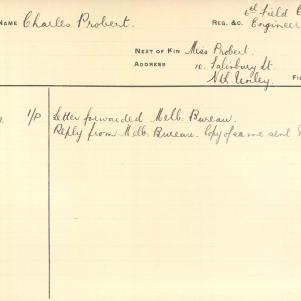 6th Field C
NAME Charles Probert. REG. &C. Engineer
NEXT OF KIN Miss Probert.
ADDRESS 10. Salisbury St.
Nth Unley. FI
1/P Letter forwarded Melb. Bureau.
Reply from Melb. Bureau. Copy of same sent